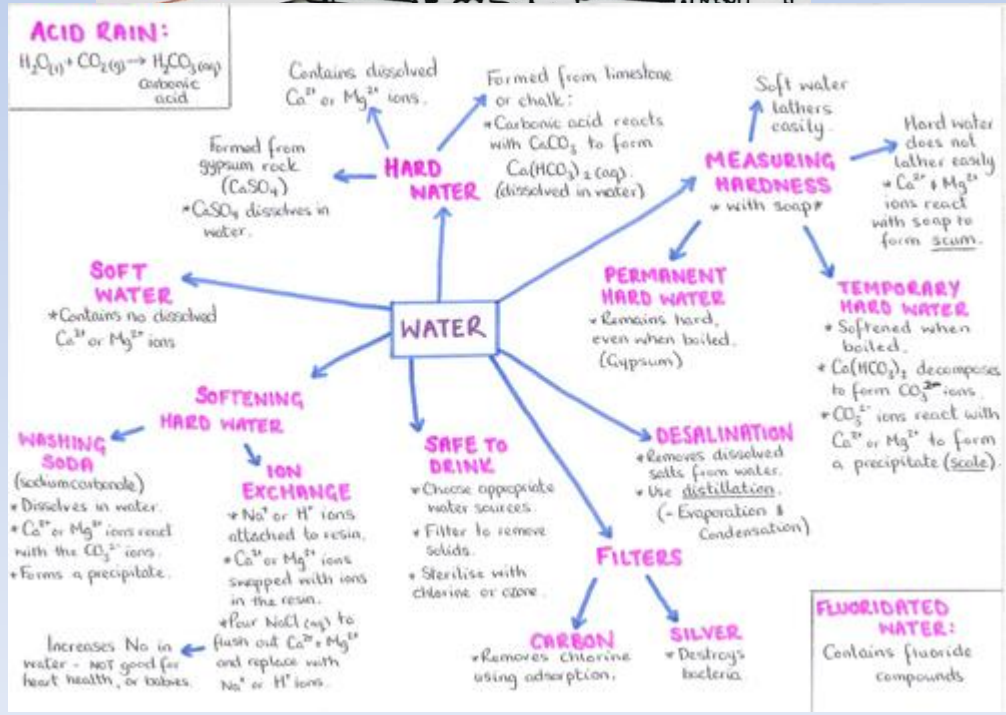 ACID RAIN:
H₂O(l) + CO₂(g) → H₂CO₃(aq)
Carbonic
acid
Contains dissolved
Ca²⁺ or Mg²⁺ ions.
Formed from limestone
or chalk:
* Carbonic acid reacts
with CaCO₃ to form
Ca(HCO₃)₂(aq).
(dissolved in water)
Formed from
gypsum rock
(CaSO₄)
* CaSO₄ dissolves in
water.
HARD
WATER
Soft water
lathers
easily.
MEASURING
HARDNESS
* with soap *
Hard water
does not
lather easily
* Ca²⁺ & Mg²⁺
ions react
with soap to
form scum.
SOFT
WATER
* Contains no dissolved
Ca²⁺ or Mg²⁺ ions
WATER
PERMANENT
HARD WATER
* Remains hard,
even when boiled.
(Gypsum)
TEMPORARY
HARD WATER
* Softened when
boiled.
* Ca(HCO₃)₂ decomposes
to form CO₃²⁻ ions.
* CO₃²⁻ ions react with
Ca²⁺ or Mg²⁺ to form
a precipitate (scale).
SOFTENING
HARD WATER
WASHING
SODA
(sodium carbonate)
* Dissolves in water.
* Ca²⁺ or Mg²⁺ ions react
with the CO₃²⁻ ions.
* Forms a precipitate.
ION
EXCHANGE
* Na⁺ or H⁺ ions
attached to resin.
* Ca²⁺ or Mg²⁺ ions
swapped with ions
in the resin.
* Pour NaCl(aq) to
flush out Ca²⁺ & Mg²⁺
and replace with
Na⁺ or H⁺ ions.
Increases Na in
water - NOT good for
heart health, or babies.
SAFE TO
DRINK
* Choose appropriate
water sources.
* Filter to remove
solids.
* Sterilise with
chlorine or ozone.
DESALINATION
* Removes dissolved
salts from water.
* Use distillation.
(- Evaporation &
Condensation)
FILTERS
CARBON
* Removes chlorine
using adsorption.
SILVER
* Destroys
bacteria
FLUORIDATED
WATER:
Contains fluoride
compounds